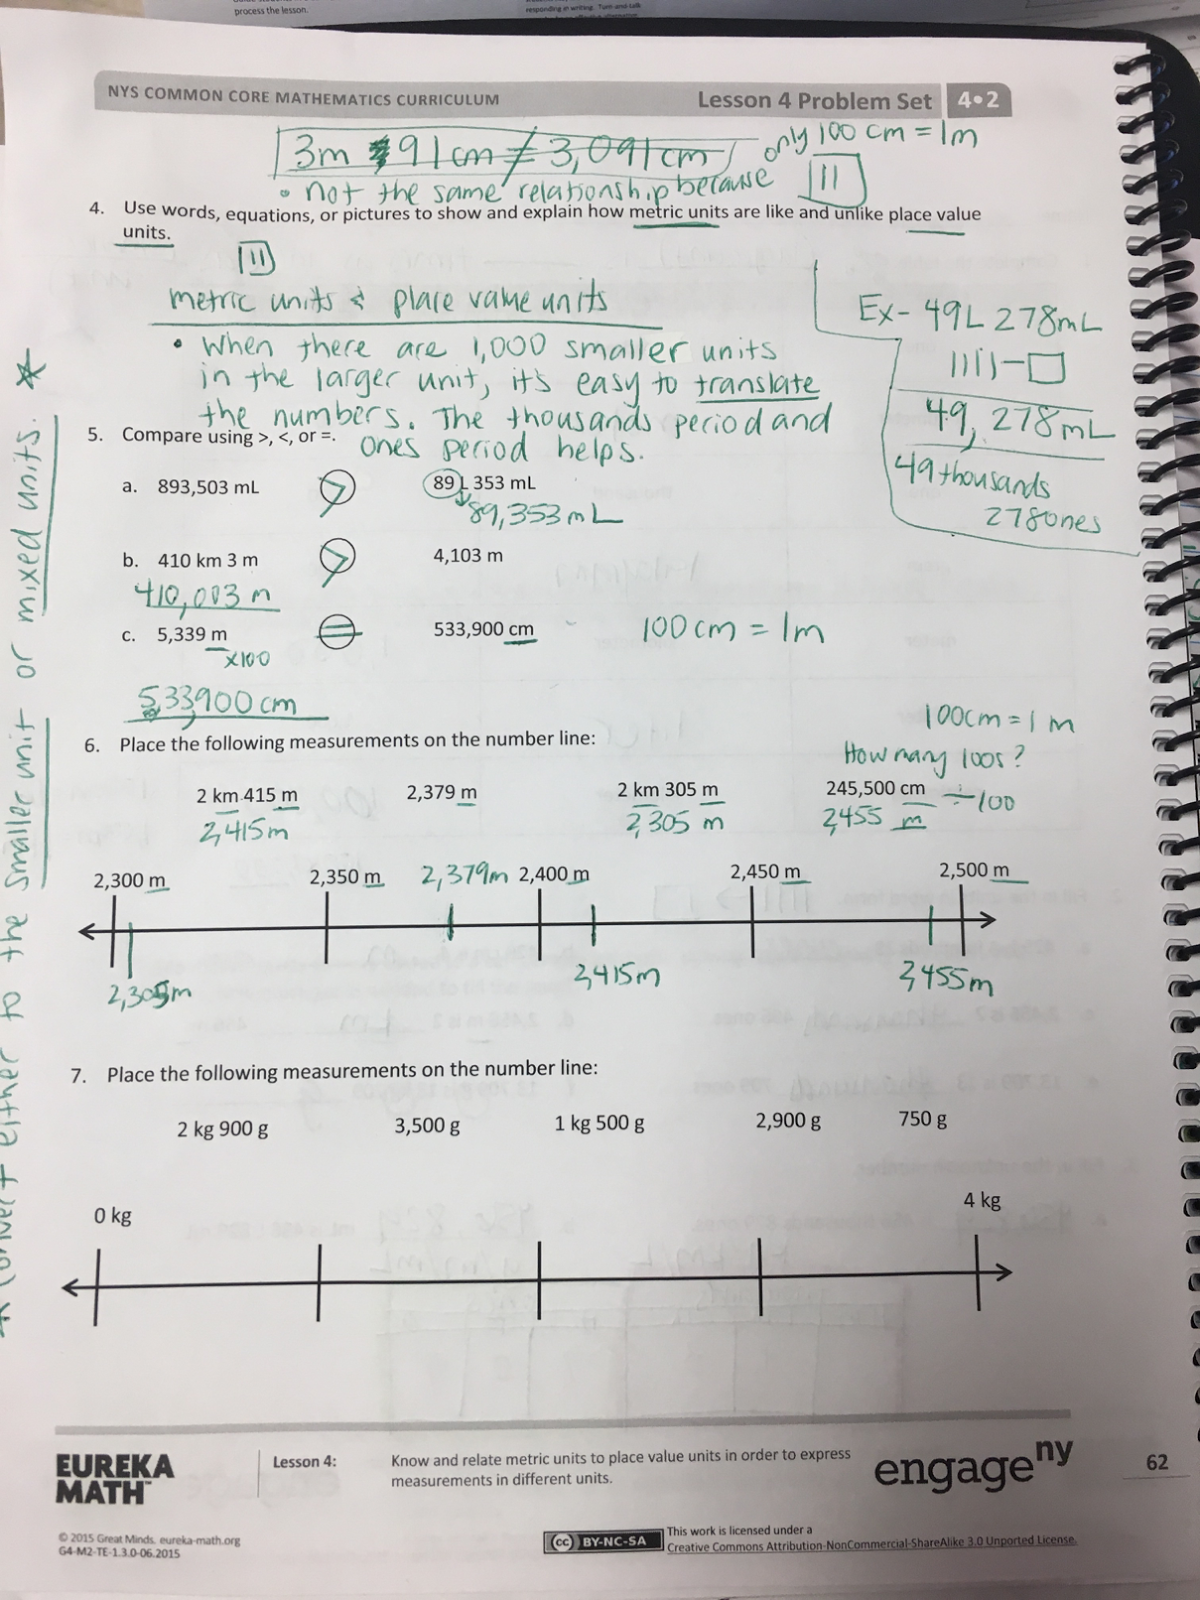 process the lesson.
responding in writing. Turn-and-talk
NYS COMMON CORE MATHEMATICS CURRICULUM
Lesson 4 Problem Set 4•2
3m 91cm ≠ 3,091cm
only 100 cm = 1m
• not the same relationship because
4. Use words, equations, or pictures to show and explain how metric units are like and unlike place value
units.
metric units & place value units
• When there are 1,000 smaller units
in the larger unit, it's easy to translate
the numbers. The thousands period and
ones period helps.
Ex- 49L 278mL
49,278mL
49 thousands
278 ones
5. Compare using >, <, or =.
a. 893,503 mL > 89 L 353 mL
89,353 mL
b. 410 km 3 m > 4,103 m
410,003 m
c. 5,339 m = 533,900 cm
100 cm = 1m
x100
533,900 cm
100cm = 1 m
6. Place the following measurements on the number line:
How many 100s?
2 km 415 m 2,379 m 2 km 305 m 245,500 cm ÷100
2,415m 2,305 m 2,455 m
2,300 m 2,350 m 2,379m 2,400 m 2,450 m 2,500 m
2,305m 2,415m 2,455m
7. Place the following measurements on the number line:
2 kg 900 g 3,500 g 1 kg 500 g 2,900 g 750 g
0 kg 4 kg
* Convert either to the smaller unit or mixed units. *
EUREKA
MATH™
Lesson 4:
Know and relate metric units to place value units in order to express
measurements in different units.
engageny
62
© 2015 Great Minds. eureka-math.org
G4-M2-TE-1.3.0-06.2015
cc BY-NC-SA
This work is licensed under a
Creative Commons Attribution-NonCommercial-ShareAlike 3.0 Unported License.